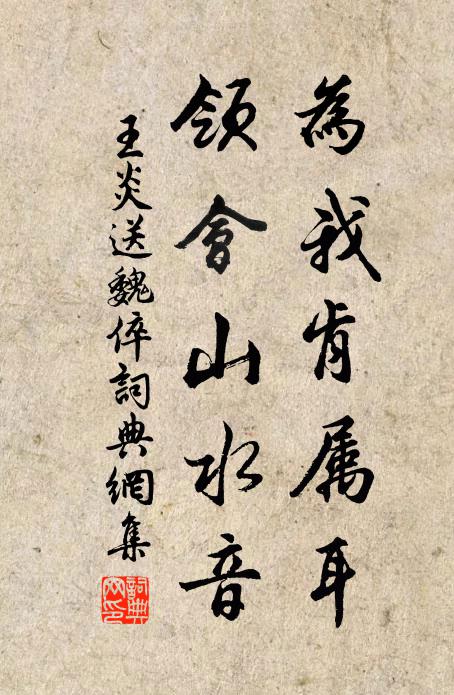 為我肯属耳
領會山水音
王炎送魏倅詞典網集
詞典網印